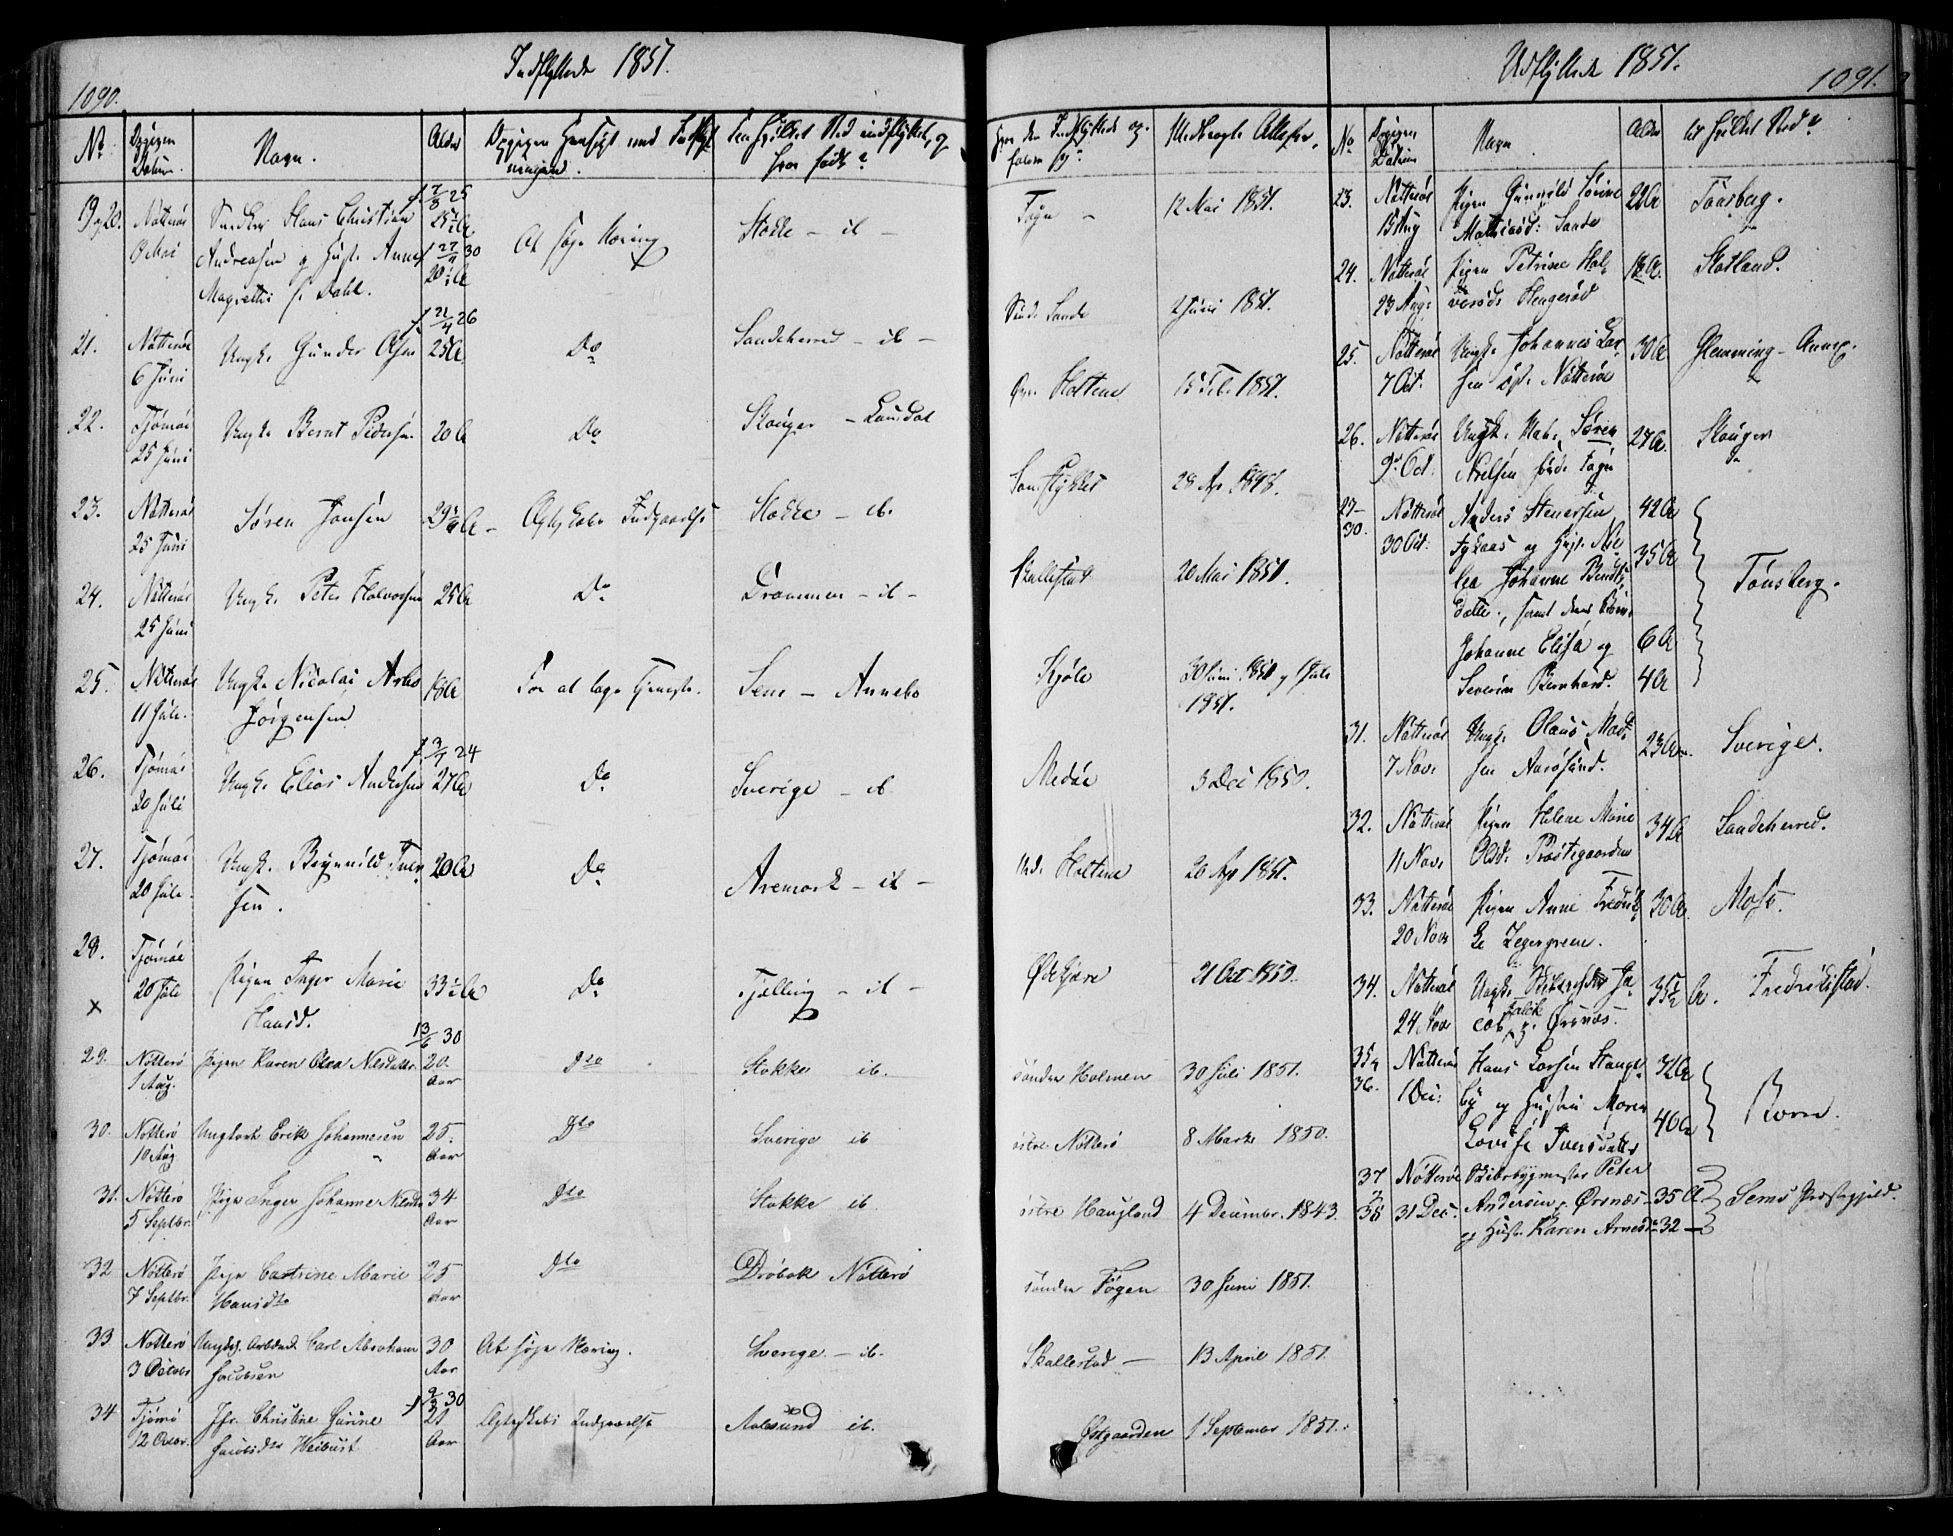 1090.
Indflyttede 1851.
No
Opgiven Datum.
Navn.
Alder
Opgiven Hensigt med Indflytningen.
Fra hvilket Sted indflyttet, og hvor født?
19 og 20.
Nøtterøe
8 Mai
Smedker Hans Christian
Andreasen og Hust. Anne
Magrethe f. Dahl.
f. 7/5 25
25 A
f. 27/4 30
20½ A
At søge Næring
Stokke - ib -
21.
Nøtterøe
6 Juni
Ungk. Gunder Olsen
f. 21/4 26
25 A
Do
Sandeherred - ib -
22.
Tjømøe
25 Juni
Ungk. Bernt Pedersen
20 A
Do
Skouger - Laurdal
23.
Nøtterøe
25 Juni
Søren Jansen
29 A
Ægteskabs Indgaaelse
Stokke - ib.
24.
Nøtterøe
25 Juni
Ungk. Peter Halvorsen
25 A
Do
Drammen - ib -
25.
Nøtterøe
11 Juli.
Ungk. Nicolai Arbo
Jørgensen
18 A
For at tage Tjeneste.
Sem - Annebo
26.
Tjømøe
20 Juli
Ungk. Elias Andersen
f. 3/7 24
27 A
Do
Sverige - ib
27.
Tjømøe
20 Juli.
Ungk. Brynnild Iversen.
20 A
Do
Aremark - ib -
28.
x
Tjømøe
20 Juli
Pigen Inger Marie
Hansd.
33½ A
Do
Tjølling - ib -
29.
Nøtterø
1 Aug.
Pigen Karen Olea Nilsdatter
13/6 30
20.
Aar
Dto
Stokke ib.
30.
Nøtterø
10 Aug.
Ungkarl Erik Johannesen
25.
Aar
Dto
Sverige ib
31.
Nøtterø
5 Septbr.
Pige Inger Johanne Nilsdtr
34
Aar
Dto
Stokke ib.
32
Nøtterø
7 Septbr.
Pige Cathrine Marie
Hansdtr
25
Aar
Dto
Drøbak Nøtterø
33
Nøtterø
3 Octobr
Ungkg. Arbeidsmd. Carl Abraham
Jacobsen
30
Aar
At søge Næring.
Sverige - ib.
34
Tjømø
12 Octbr.
Jfr. Christine Larine
Jacobsdtr Heibust
f 9/3 30
21
Aar
Ægteskabs Indgaaelse
Aalesund ib.
Hvor den Indflyttede og-
Medbragte Attester.
Føgn -
12 Mai 1851.
Sønd. Sande
2 Juni 1851.
Øvre Holtene
15 Feb. 1851.
Sandflykket
28 Ap 1848.
Skallestad
20 Mai 1851.
Kjøle
30 Juni 1850 og 1 Juli
1851.
Medøe
5 Dec 1850.
Ned. Holtene
26 Ap 1851.
Ødekjære
21 Oct 1850.
søndre Holmen
30 Juli 1851.
østre Nøtterø
8 Marts 1850.
østre Haugland
4 December. 1843.
søndre Føgen
30 Juni 1851.
Skallestad -
13 April 1851.
Østgaarden
1 September 1851.
Udflyttede 1851.
1091.
No
Opgiven Datum
Navn
Alder
til hvilket Sted?
23.
Nøtterøe
15 Aug
Pigen Gunnild Sørine
Mathiasd: Sande
22 A
Tønsberg.
24.
Nøtterøe
23 Aug:
Pigen Petrine Halversd: Hengsrød
18 A.
Skotland.
25.
Nøtterøe
7 Oct.
Ungk. Johannes Larsen øst. Nøtterøe
30 A
Glemming - Annex.
26.
Nøtterøe
9 Oct.
Ungk. Mats. Søren
Nielsen sønd. Føgn
27 A.
Skouger
27-
30.
Nøtterøe
30 Oct:
Anders Steuersen
Fykaas og Hust. Nicolea Johanne Bendtsdatter, samt deres Børn
Johanne Elisa og
Severin Bernhard.
42 A
35 A
6 A
4 A
Tønsberg.
31.
Nøtterøe
7 Nov.
Ungk. Olaus Madsen Aarøsund.
23 A
Sverige.
32.
Nøtterøe
11 Nov.
Pigen Helene Marie
Olsd: Præstegaarden
34 A
Sandeherred.
33.
Nøtterøe
20 Nov
Pigen Anne Fredrikke Zegergreen.
30 A
Moss.
34.
Nøtterøe
24 Nov
Ungk. Skibsrheder Jacob Falck. Ørsnæs.
35½ A.
Fredrikstad.
35 &
36.
Nøtterøe
1 Dec:
Hans Larsen Stangeby og Hustru Maren
Lovise Iversdatter
32 A
40 A
Borre.
37
&
38
Nøtterøe
31 Dec:
Skibsbygmester Peter
Andersen - Ørsnæs - 35 A
og Hust. Karen Arnesdr 32 -
Sems Præstegjeld.